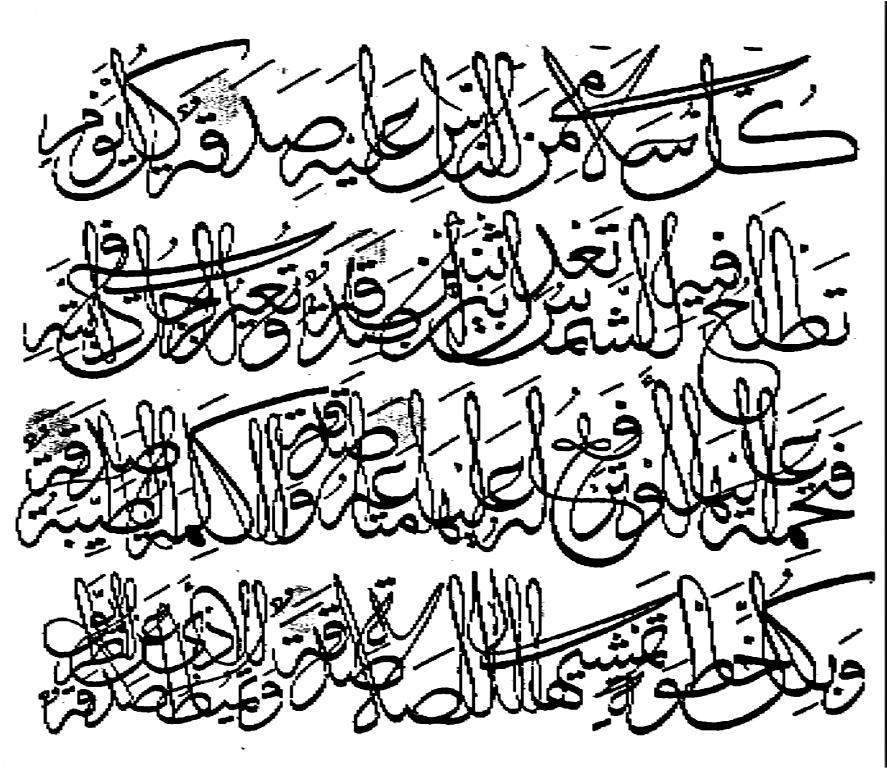 كل سلامى من الناس عليه صدقة كل يوم
تطلع فيه الشمس تعدل بين اثنين صدقة وتعين الرجل في دابته
فتحمله عليها أو ترفع له عليها متاعه صدقة والكلمة الطيبة صدقة
وبكل خطوة تمشيها إلى الصلاة صدقة وتميط الأذى عن الطريق صدقة